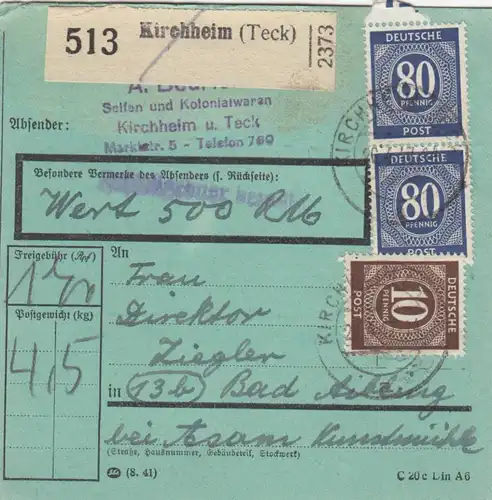 513
Kirchheim (Teck)
2373
Seifen und Kolonialwaren
Kirchheim u. Teck
Marktstr. 5 - Telefon 760
Absender:
Besondere Vermerke des Absenders (s. Rückseite):
Wert 500 RM
DEUTSCHE
80
PFENNIG
POST
DEUTSCHE
80
PFENNIG
POST
DEUTSCHE
10
PFENNIG
POST
KIRCH
KIRCH
Freigebühr (Rpf)
Postgewicht (kg)
4,5
An
Frau
Direktor
Ziegler
in 13b Bad Aibling
bei Asam Kunstmühle
(Straße, Hausnummer, Gebäudeteil, Stockwerk)
(8. 41)
C 20c Din A6